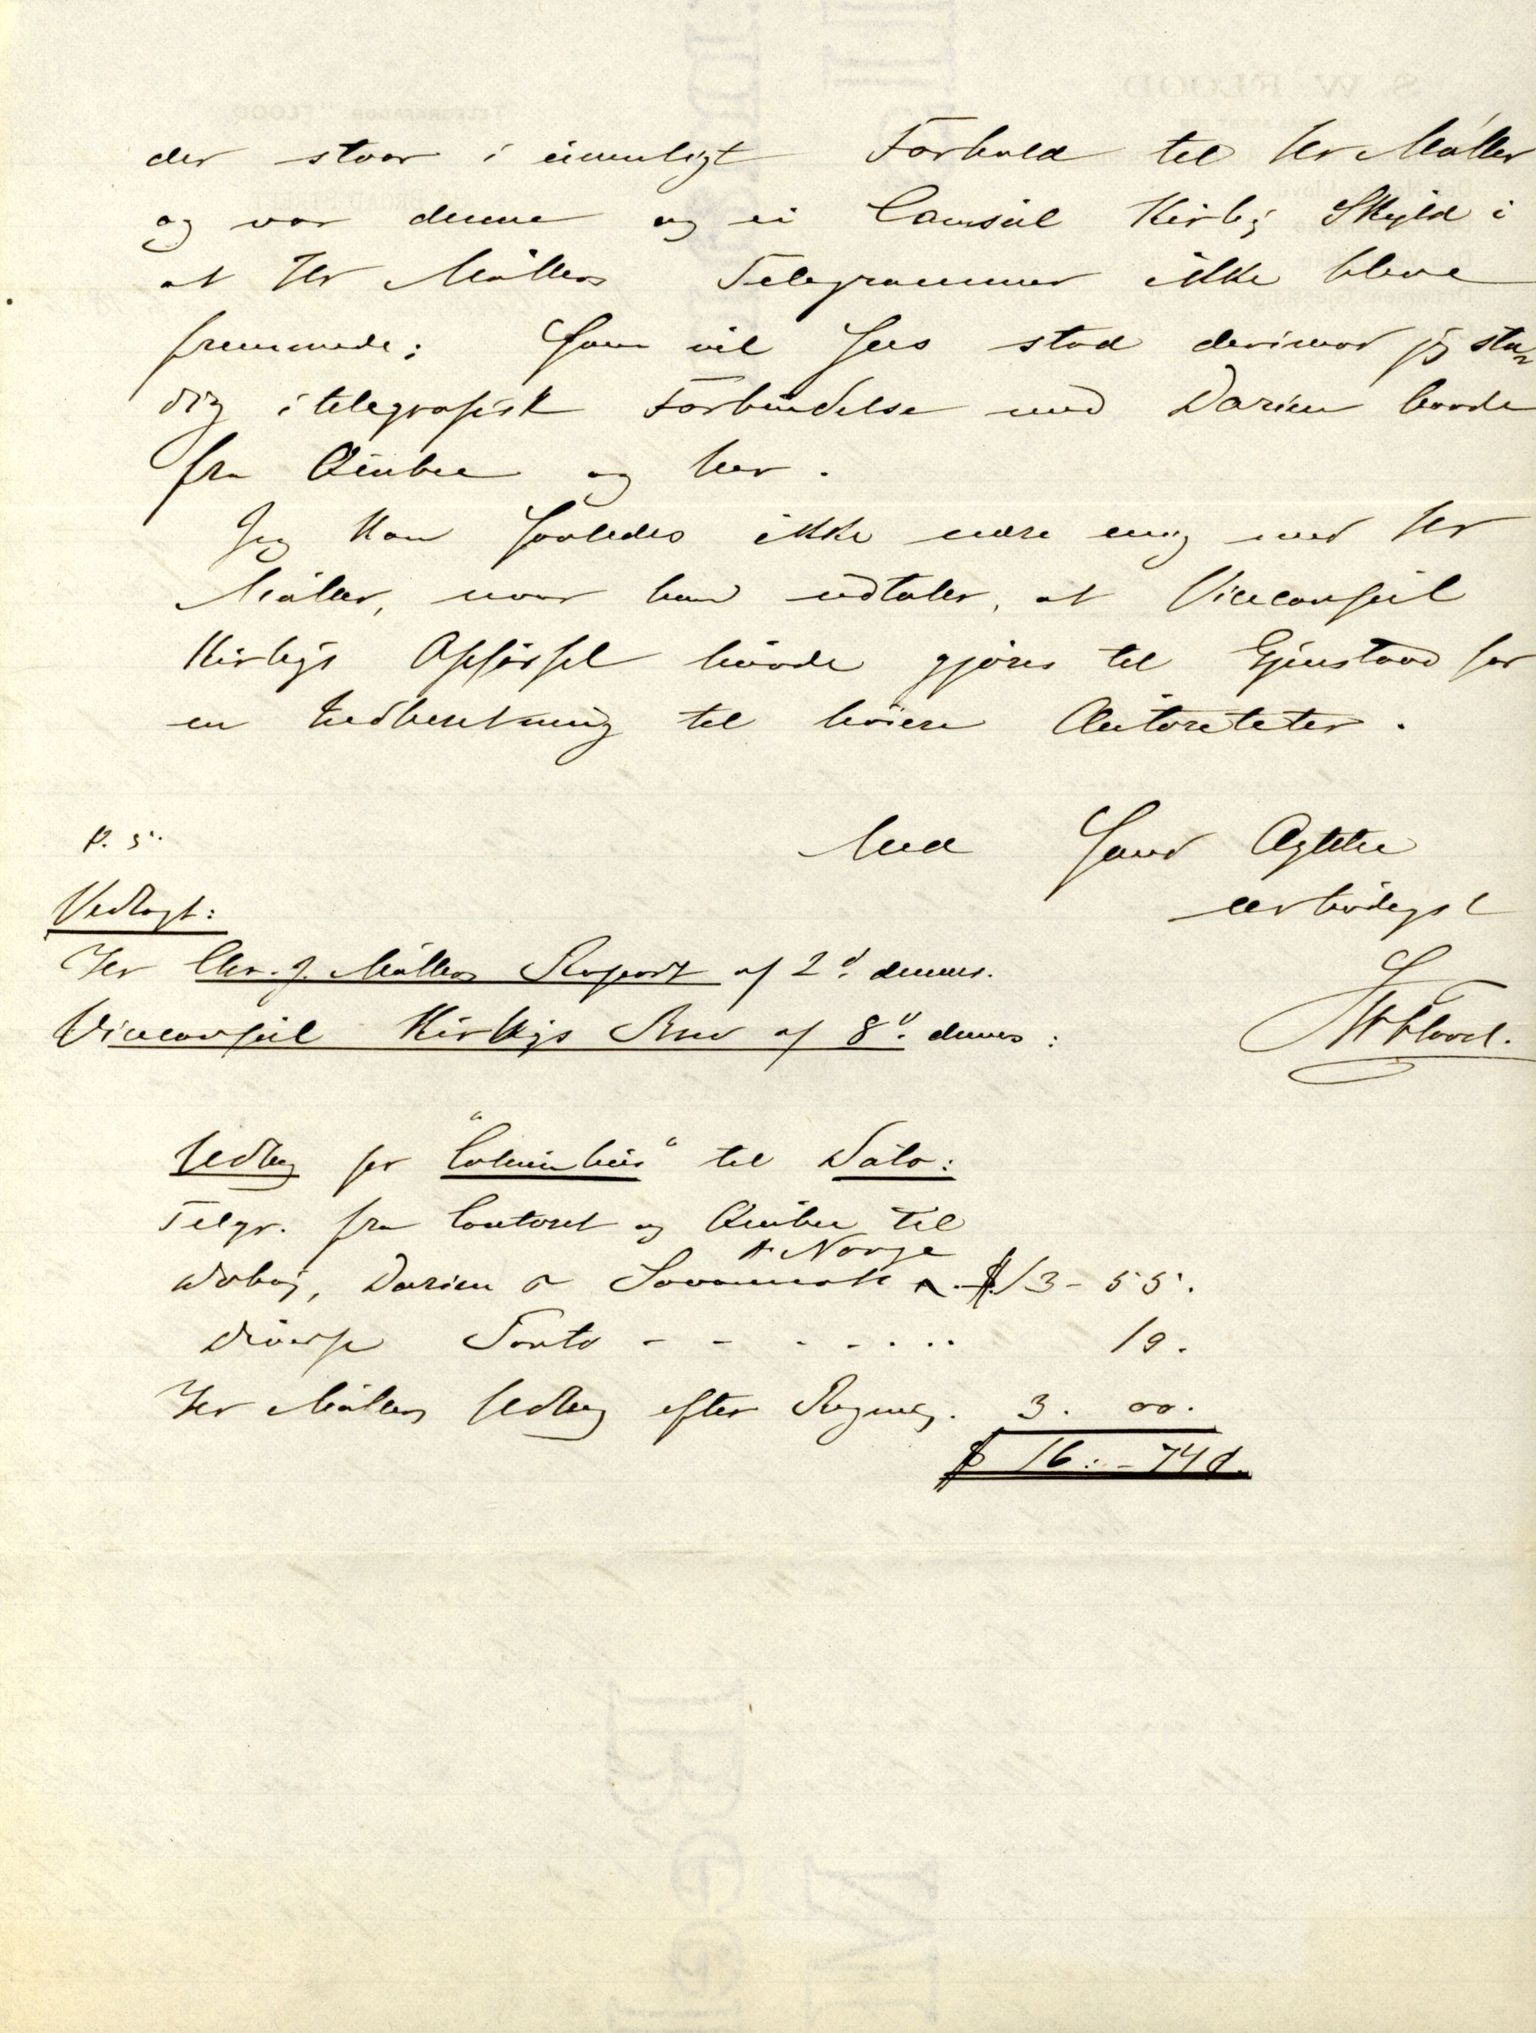 der staar i uvenligt Forhold til Hr Møller
og var denne og ei Consul Kirby Skyld i
at Hr Møllers Telegrammer ikke bleve
fremmede; Som vil sees stod derimod jeg sta=
dig i telegrafisk Forbindelse med Darien baade
fra Quebec og her.
Jeg kan saaledes ikke være enig med Hr
Møller, naar han udtaler, at Viceconsul
Kirbys Opførsel burde gjøres til Gjenstand for
en Indberetning til høiere Autoriteter.
P. S.
Med sand Agtelse
ærbødigst
S W Flood.
Vedlagt:
Hr Chr. J. Møllers Raport af 2d. dennes.
Viceconsul Kirbys Brev af 8d. dennes:
Udlæg for "Columbus" til Dato:
Telgr. fra Contoret og Quebec til
Doboy, Darien & Savannah & Norge $13-55.
Diverse Porto - - - - - 19.
Hr Møllers Udlæg efter Regning. 3. 00.
$ 16: - 74 d.
S. W. FLOOD